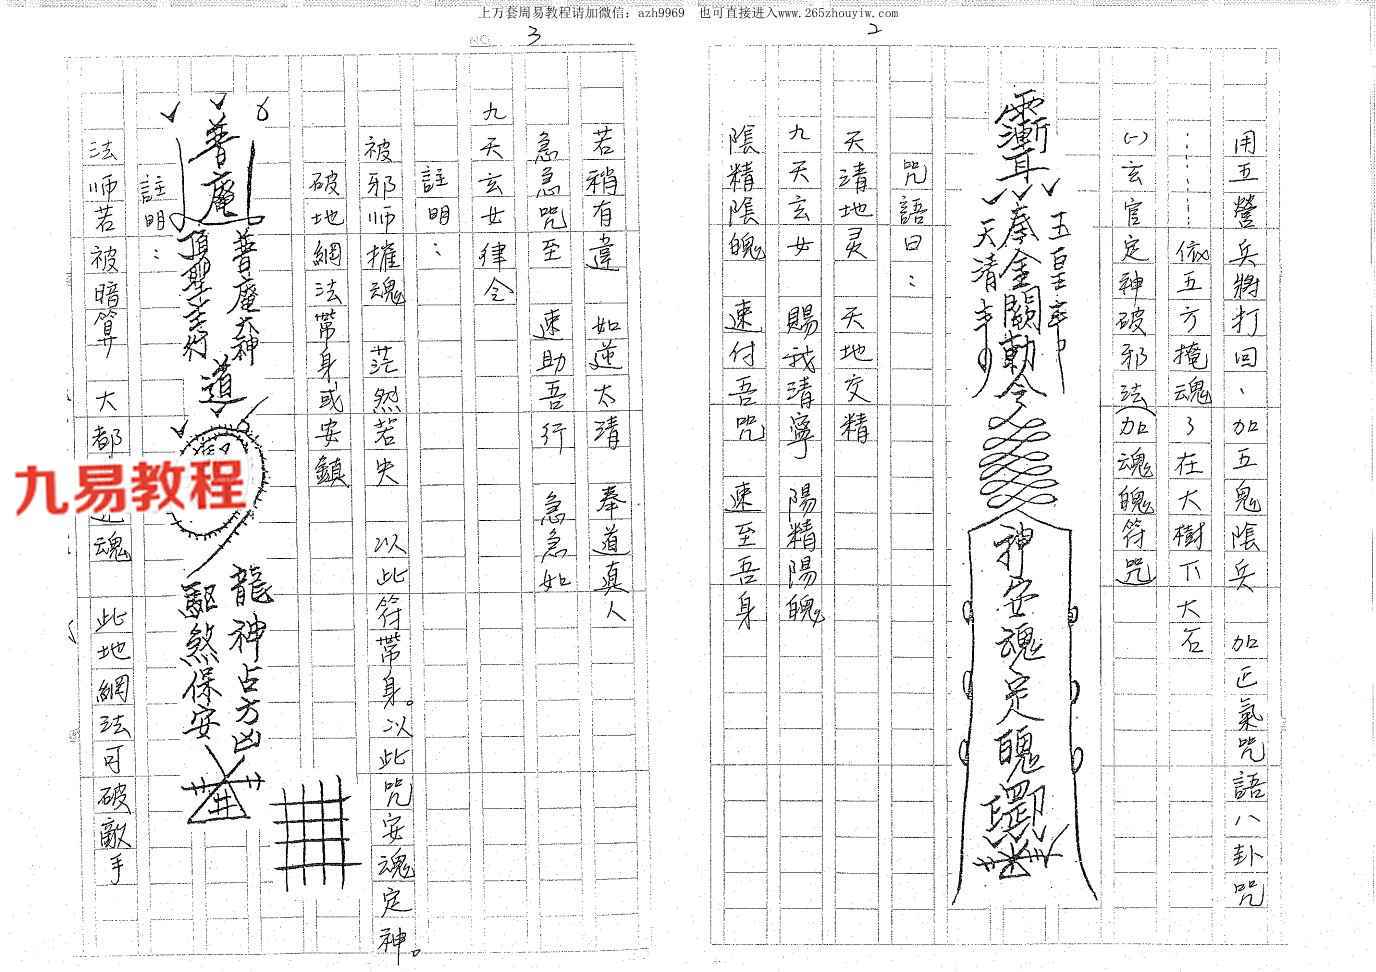 上万套周易教程请加微信：azh9969　也可直接进入www.265zhouyiw.com
2
用五營兵將打回、加五鬼陰兵 加正氣咒語八卦咒
⋯⋯依五方掩魂了在大樹下大石
(一)玄官定神破邪法(加魂魄符咒)
玉皇奉
奉金闕勅令
天清奉
神安魂定魄罡印
咒語曰：
天清地灵 天地交精
九天玄女 賜我清寧 陽精陽魄
陰精陰魄 速付吾咒 速至吾身
NO. 3
若稍有違 如逆太清 奉道真人
急急咒至 速助吾行 急急如
九天玄女律令
註明：
被邪师摧魂 茫然若失 以此符帶身。以此咒安魂定神。
破地網法帶身或安鎮
普庵
普庵大神
道
龍神占方凶
驅煞保安
註明：
法师若被暗算 大都 魂 此地網法可破敵手
九易教程